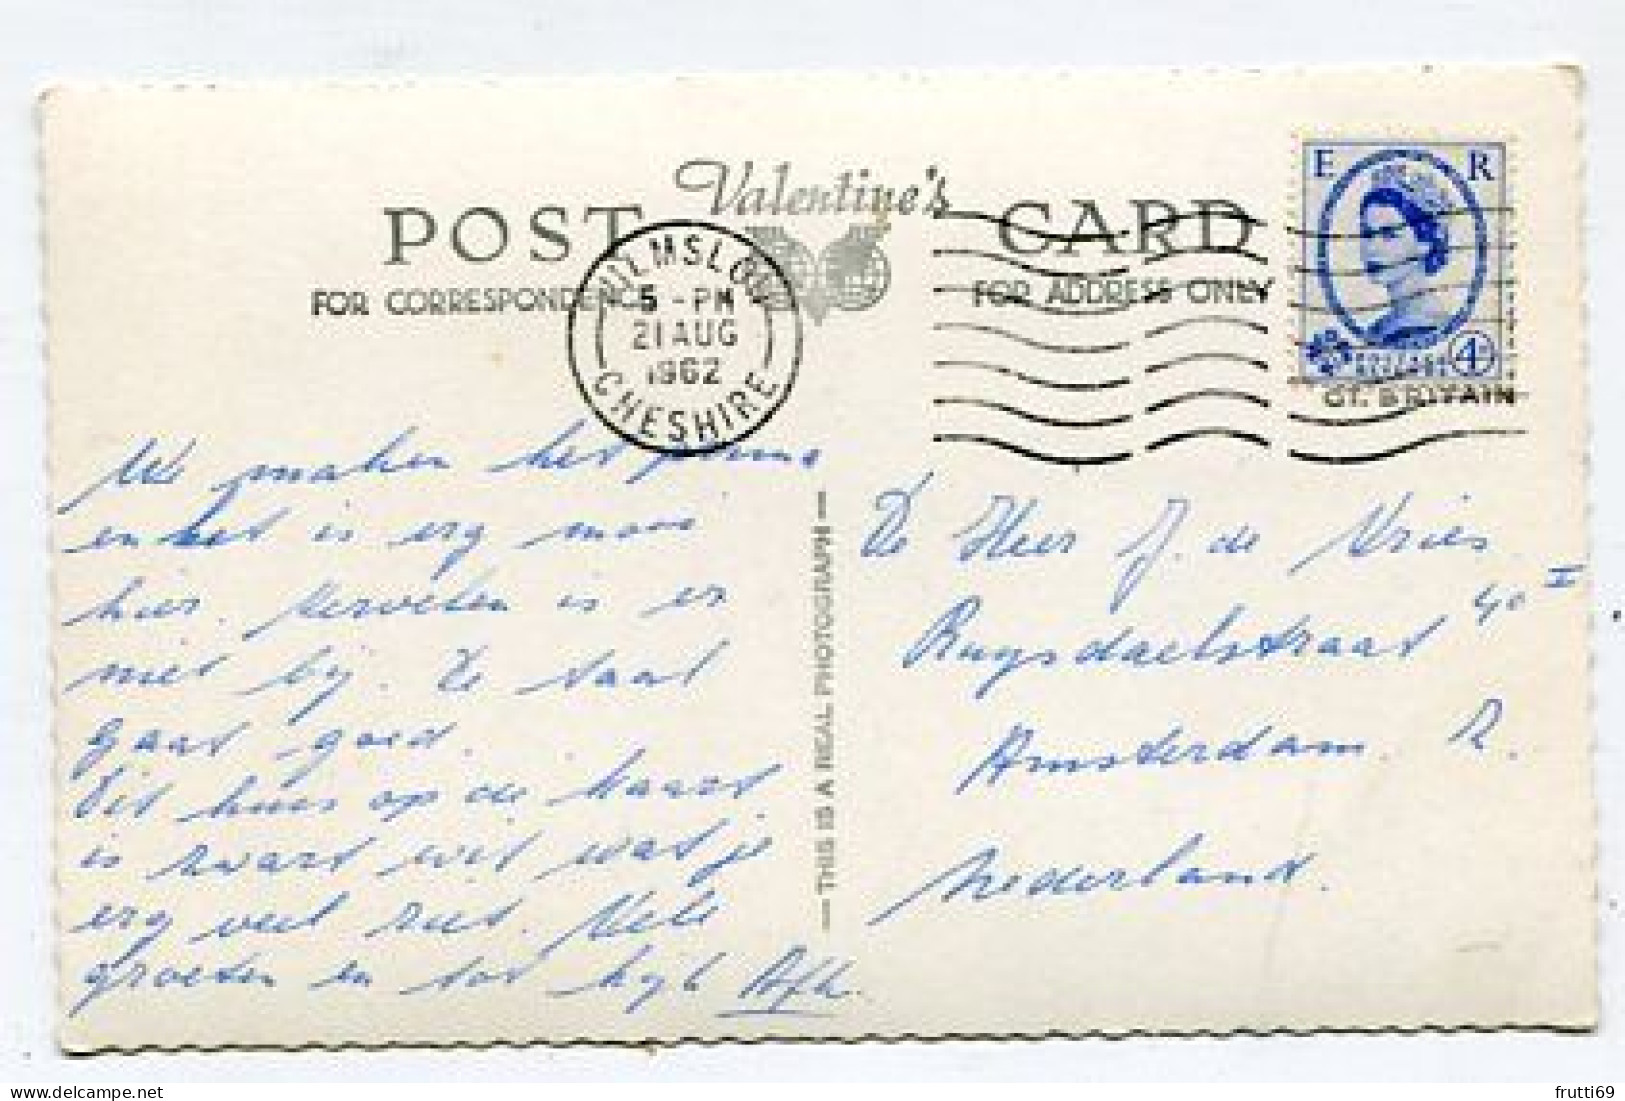 Valentine's
POST CARD
FOR CORRESPONDENCE
FOR ADDRESS ONLY
WILMSLOW
5 - PM
21 AUG
1962
CHESHIRE
E R
POSTAGE
REVENUE
4D
GT. BRITAIN
We maken het prima
en het is erg mooi
hier. Vervelen is er
niet bij. De taal
gaat goed.
Dit huis op de kaart
is zwart wit wat je
erg veel ziet. Vele
groeten en tot kijk
THIS IS A REAL PHOTOGRAPH
De Heer J. de Vries
Ruysdaelstraat 40 I
Amsterdam. Z.
Nederland.
frutti69